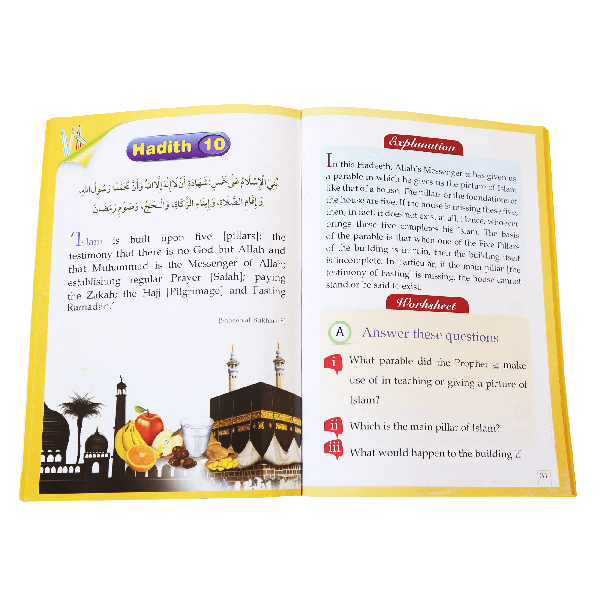 Hadith 10
بُنِيَ الإِسْلَامُ عَلَى خَمْسٍ: شَهَادَةِ أَنْ لَا إِلَهَ إِلَّا اللَّهُ وَأَنَّ مُحَمَّدًا رَسُولُ اللَّهِ،
وَإِقَامِ الصَّلَاةِ، وَإِيتَاءِ الزَّكَاةِ، وَالْحَجِّ، وَصَوْمِ رَمَضَانَ
'Islam is built upon five [pillars]: the
testimony that there is no God but Allah and
that Muhammad is the Messenger of Allah;
establishing regular Prayer [Salah]; paying
the Zakah; the Hajj [Pilgrimage] and Fasting
Ramadan.'
[Saheeh al-Bukhari: 8]
Explanation
In this Hadeeth, Allah's Messenger ﷺ has given us
a parable in which he gives us the picture of Islam
like that of a house. The pillars or the foundations of
the house are five. If the house is missing these five,
then, in fact, it does not exist at all. Hence, whoever
brings these five completes his Islam. The basis
of the parable is that when one of the Five Pillars
of the building is in ruin, then the building itself
is incomplete. In particular, if the main pillar [the
testimony of Fasting] is missing, the house cannot
stand or be said to exist.
Worksheet
A Answer these questions
i What parable did the Prophet ﷺ make
use of in teaching or giving a picture of
Islam?
ii Which is the main pillar of Islam?
iii What would happen to the building if